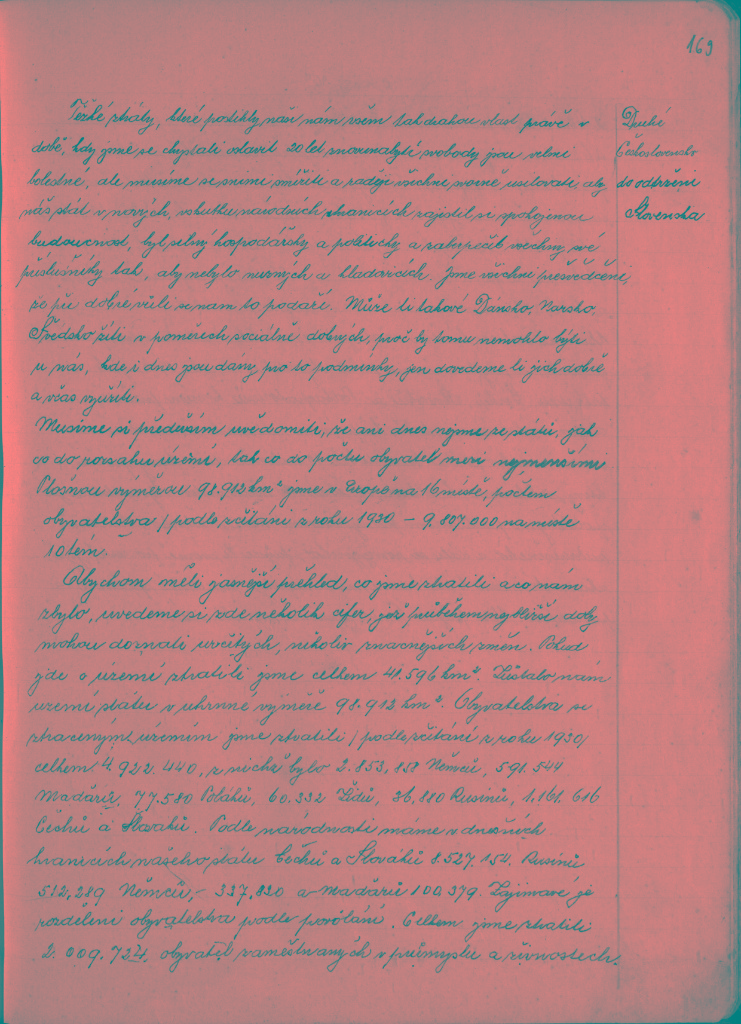 169
Těžké ztráty, které postihly naši nám všem tak drahou vlast právě v
době, kdy jsme se chystali oslavit 20 let svobody jsou velmi
bolestné, ale musíme se s nimi smířiti a raději všichni svorně usilovati, aby
náš stát v nových, vskutku národních hranicích zajistil si spokojenou
budoucnost, byl silný hospodářsky a politicky a zabezpečil všechny své
příslušníky tak, aby nebylo nuzných a hladových. Jsme všichni přesvědčeni,
že při dobré vůli se nám to podaří. Může-li takové Dánsko, Norsko,
Švédsko žíti v poměrech sociálně dobrých, proč by tomu nemohlo býti
u nás, kde i dnes jsou dány pro to podmínky, jen dovedeme-li jich dobře
a včas využíti.
Musíme si především uvědomiti, že ani dnes nejsme ze států, jak
co do rozsahu území, tak co do počtu obyvatel mezi nejmenšími
Plošnou výměrou 98.912 km² jsme v Evropě na 16 místě, počtem
obyvatelstva /podle sčítání z roku 1930 – 9.807.000 na místě
10tém.
Abychom měli jasnější přehled, co jsme ztratili a co nám
zbylo, uvedeme si zde několik cifer, jež průběhem nejbližší doby
mohou doznati určitých, nikoliv značnějších změn. Pokud
jde o území ztratili jsme celkem 41.596 km². Zůstalo nám
území státu v úhrnné výměře 98.912 km². Obyvatelstva se
ztraceným územím jsme ztratili /podle sčítání z roku 1930/
celkem 4.922.440, z nichž bylo 2.853.858 Němců, 591.544
Maďarů, 77.580 Poláků, 60.332 Židů, 36.880 Rusínů, 1.161.616
Čechů a Slováků. Podle národnosti máme v dnešních
hranicích našeho státu Čechů a Slováků 8.527.154. Rusínů
512,289 Němců, – 337,820 a Maďarů 100.379. Zajímavé je
rozdělení obyvatelstva podle povolání. Celkem jsme ztratili
2.009.724 obyvatel zaměstnaných v průmyslu a živnostech.
Druhé
Československo
do odtržení
Slovenska